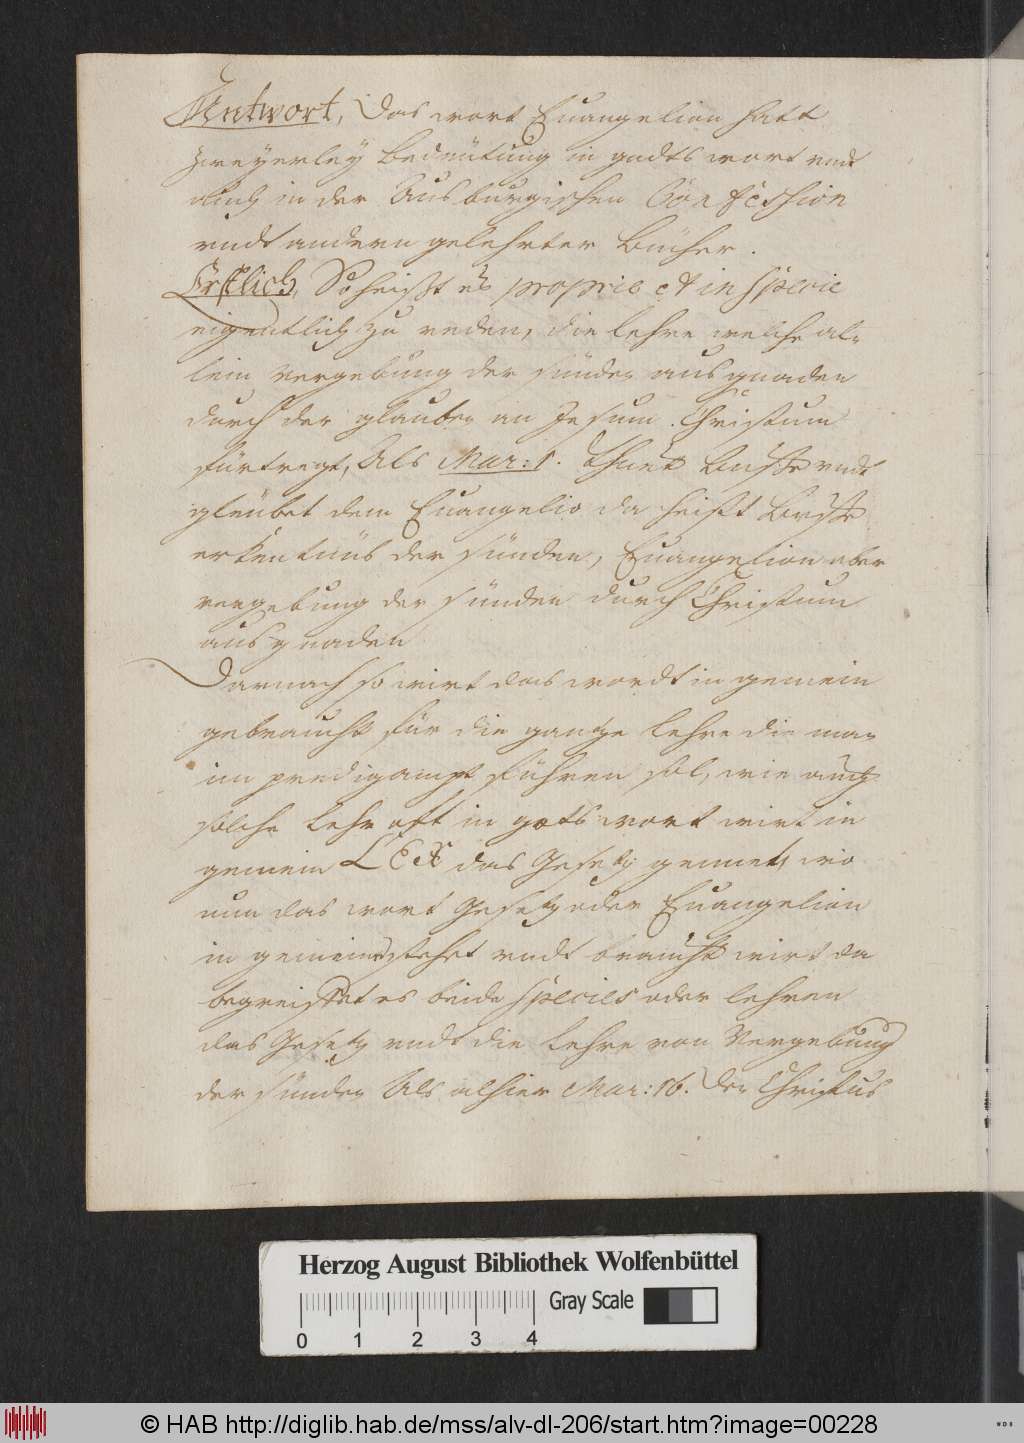 Antwort, Das wort Euangelion hatt
zweyerley bedeütung in godts wort vndt
auch in der Ausburgischen Confession
vndt andern gelehrter Bücher.
Erstlich, So heißt es proprie et in specie
eigentlich zu reden, die lehre welche al-
lein vergebung der sünden aus gnaden
durch der glauben an Jesum Christum
fürtregt, Als Mar: 1. thuet Busse vndt
gleübet dem Euangelio da heißt Busse
erkentnüs der sünden, Euangelion aber
vergebung der sünden durch Christum
aus gnaden
Darnach so wirt das wordt in gemein
gebraucht für die gantze lehre die man
im predigampt führen sol, wie auch
solche lehr oft in gots wort wirt in
gemein LEX das Gesetz gennet, wo
nun das wort Gesetz oder Euangelion
in gemein stehet vndt braucht wirt da
begreiffet es beide species oder lehren
das Gesetz vndt die lehre von Vergebung
der sünden Als alhier Mar: 16. Den Christus
Herzog August Bibliothek Wolfenbüttel
Gray Scale
0 1 2 3 4
© HAB http://diglib.hab.de/mss/alv-dl-206/start.htm?image=00228